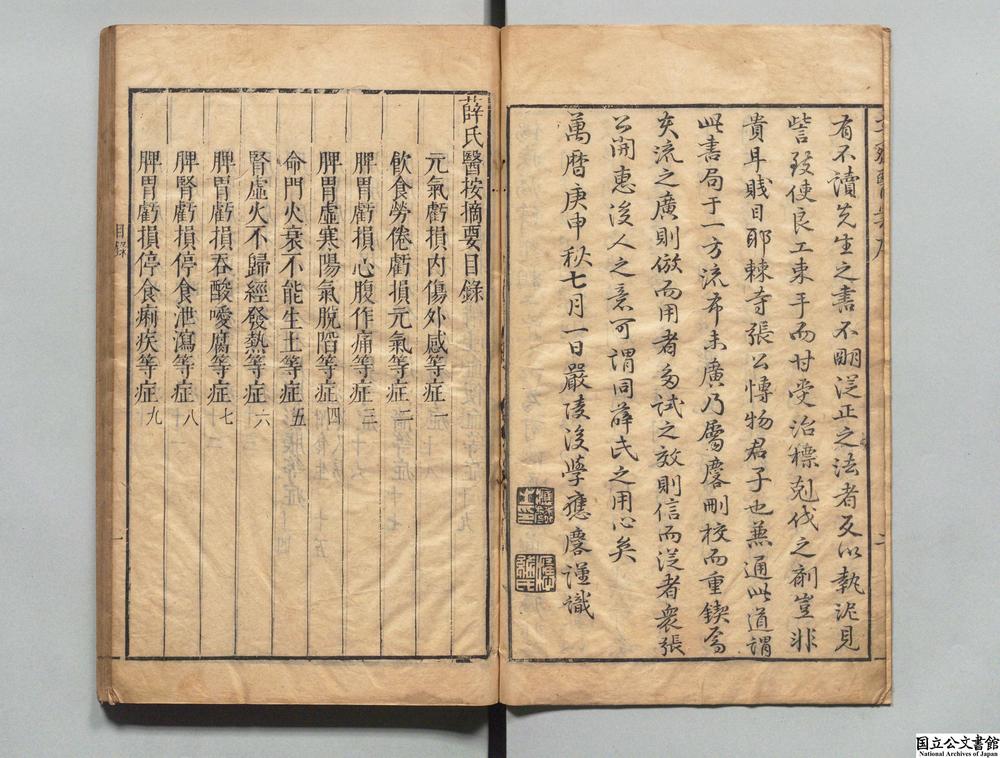 有不讀先生之書不明從正之法者反以執泥見
訾致使良工束手而甘受治標剋伐之劑豈非
貴耳賤目耶棘寺張公愽物君子也蕪通此道謂
此書局于一方流布未廣乃屬麐刪校而重鍥焉
矣流之廣則倣而用者多試之效則信而從者衆張
公開惠後人之意可謂同薛氏之用心矣
萬曆庚申秋七月一日嚴陵後學應麐謹識
薛氏醫按摘要目錄
元氣虧損內傷外感等症一
飲食勞倦虧損元氣等症二
脾胃虧損心腹作痛等症三
脾胃虛寒陽氣脫陷等症四
命門火衰不能生土等症五
腎虛火不歸經發熱等症六
脾胃虧損吞酸噯腐等症七
脾腎虧損停食泄瀉等症八
脾胃虧損停食痢疾等症九
目錄
一
国立公文書館
National Archives of Japan